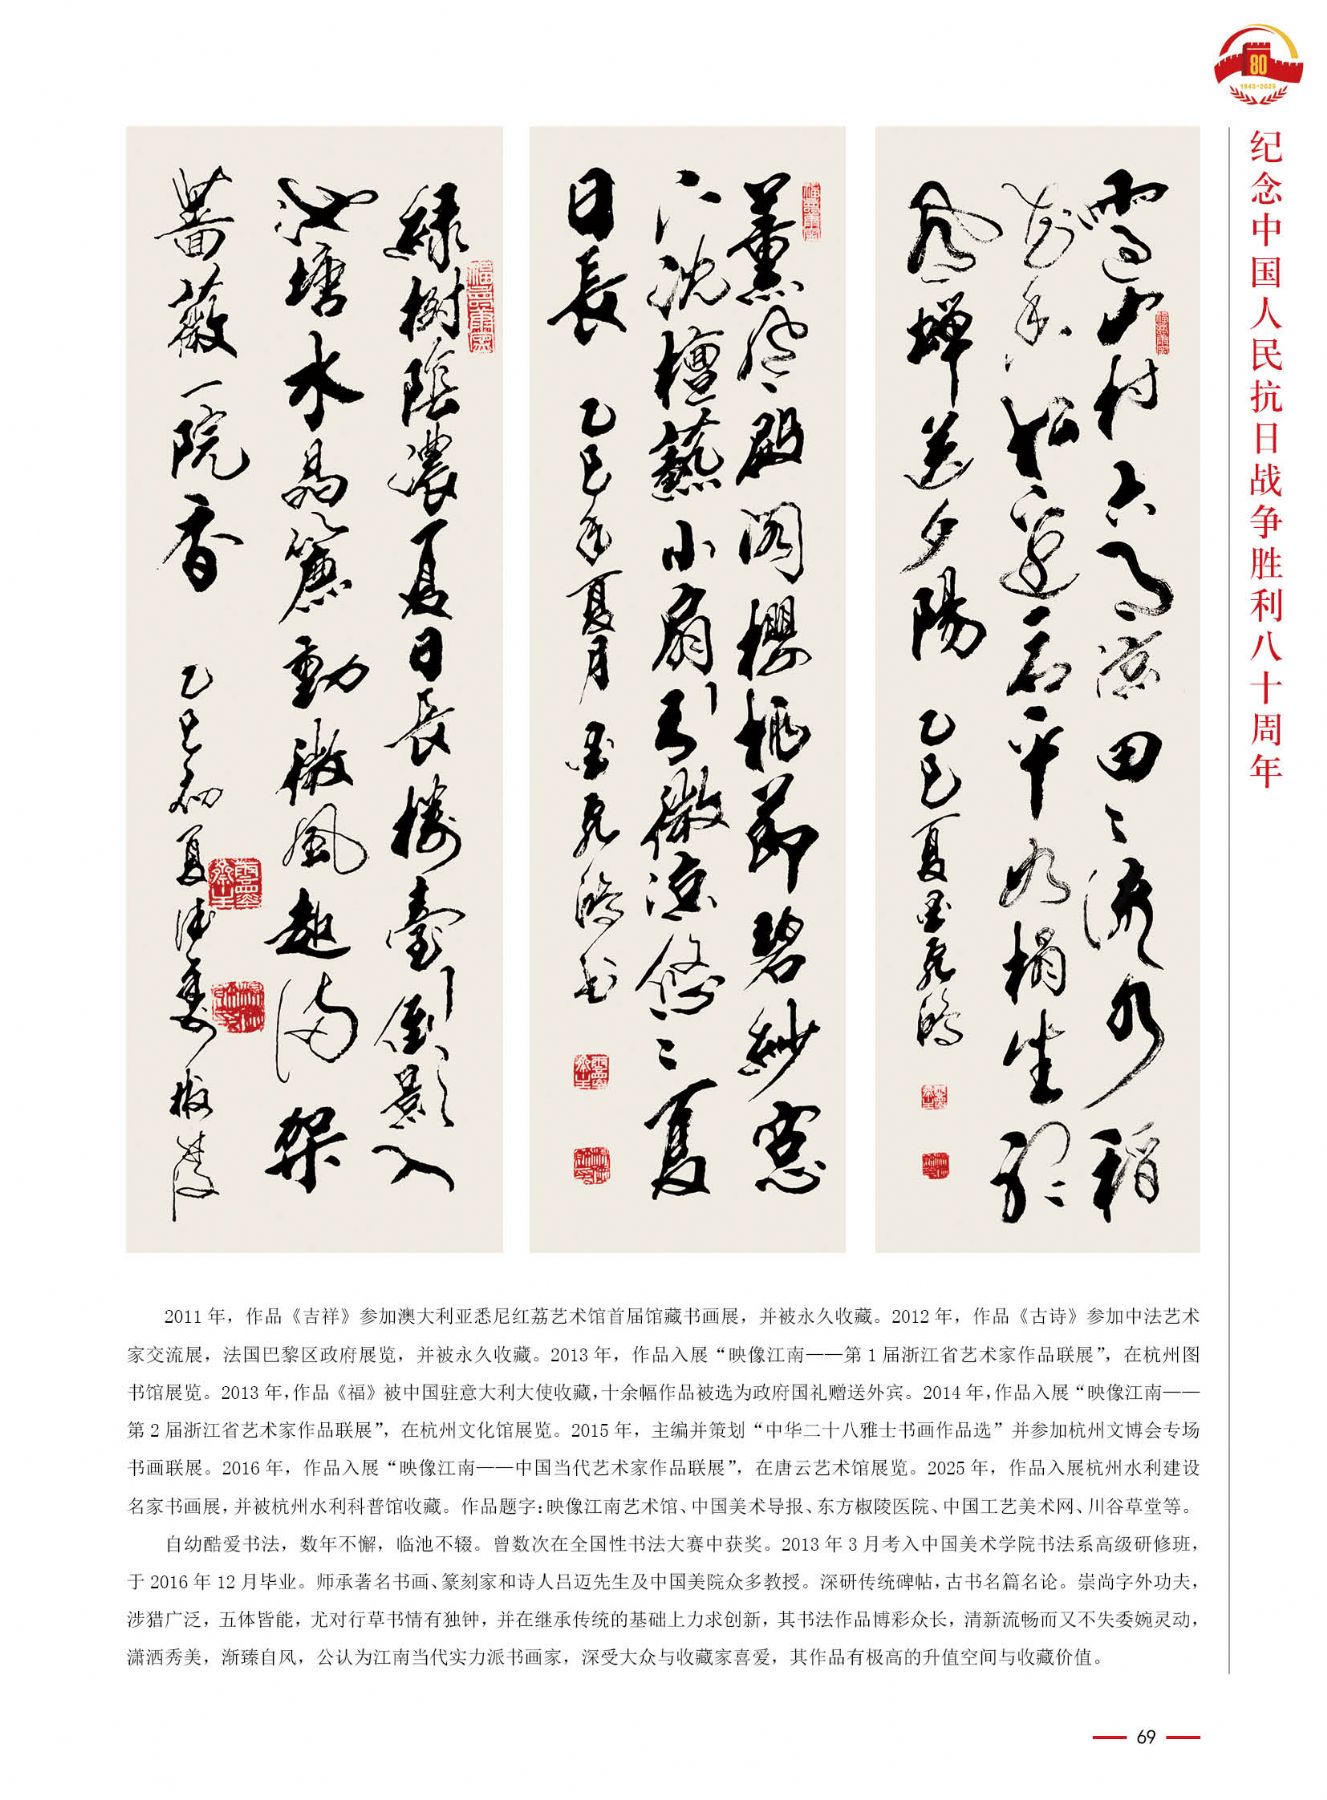 80
1945-2025
纪念中国人民抗日战争胜利八十周年
雨過山村六月涼田田流水稻
花香松邊一石平如榻坐聽
風蟬送夕陽 乙巳夏
薰風殿閣櫻桃節碧紗窓
下沈檀爇小扇引微涼悠悠夏
日長 乙巳年夏月
綠樹陰濃夏日長樓臺倒影入
池塘水晶簾動微風起滿架
薔薇一院香 乙巳初夏
2011 年，作品《吉祥》参加澳大利亚悉尼红荔艺术馆首届馆藏书画展，并被永久收藏。2012 年，作品《古诗》参加中法艺术
家交流展，法国巴黎区政府展览，并被永久收藏。2013 年，作品入展“映像江南——第 1 届浙江省艺术家作品联展”，在杭州图
书馆展览。2013 年，作品《福》被中国驻意大利大使收藏，十余幅作品被选为政府国礼赠送外宾。2014 年，作品入展“映像江南——
第 2 届浙江省艺术家作品联展”，在杭州文化馆展览。2015 年，主编并策划“中华二十八雅士书画作品选”并参加杭州文博会专场
书画联展。2016 年，作品入展“映像江南——中国当代艺术家作品联展”，在唐云艺术馆展览。2025 年，作品入展杭州水利建设
名家书画展，并被杭州水利科普馆收藏。作品题字：映像江南艺术馆、中国美术导报、东方椒陵医院、中国工艺美术网、川谷草堂等。
自幼酷爱书法，数年不懈，临池不辍。曾数次在全国性书法大赛中获奖。2013 年 3 月考入中国美术学院书法系高级研修班，
于 2016 年 12 月毕业。师承著名书画、篆刻家和诗人吕迈先生及中国美院众多教授。深研传统碑帖，古书名篇名论。崇尚字外功夫，
涉猎广泛，五体皆能，尤对行草书情有独钟，并在继承传统的基础上力求创新，其书法作品博彩众长，清新流畅而又不失委婉灵动，
潇洒秀美，渐臻自风，公认为江南当代实力派书画家，深受大众与收藏家喜爱，其作品有极高的升值空间与收藏价值。
69